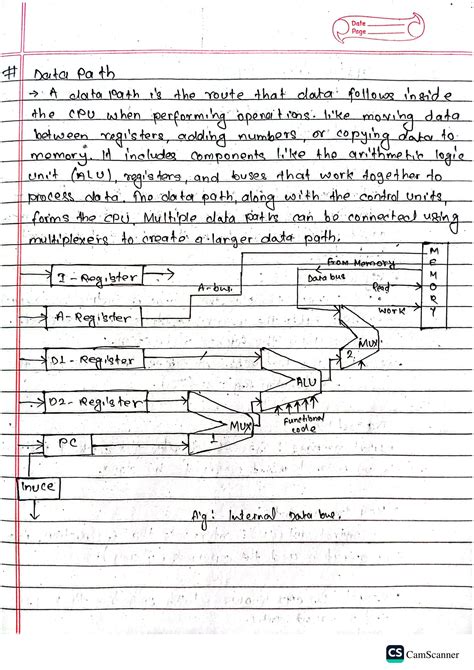 Date
Page
# Data Path
→ A data path is the route that data follows inside
the CPU when performing operations. like moving data
between registers, adding numbers, or copying data to
memory. It includes components like the arithmetic logic
unit (ALU), registers, and buses that work together to
process data. The data path, along with the control units,
forms the CPU. Multiple data paths can be connected using
multiplexers to create a larger data path.
MEMORY
From Memory
Data bus
Read
Work
I - Register
A-bus
A - Register
MUX
2
D1 - Register
ALU
D2 - Register
Functional
code
MUX
1
PC
Inuce
Fig: Internal Data bus.
CS CamScanner